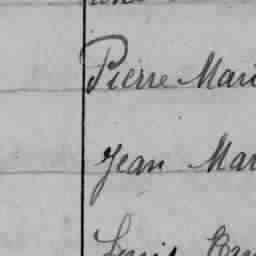 Pierre Mari
Jean Mar
Louis